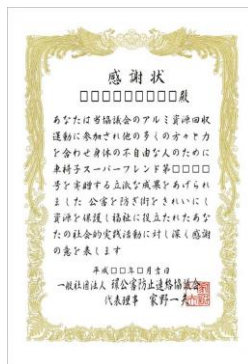 感謝状
□□□□□□□□□殿
あなたは当協議会のアルミ資源回収
運動に参加され他の多くの方々と力
を合わせ身体の不自由な人のために
車椅子スーパーフレンド第□□□□
号を寄贈する立派な成果をあげられ
ました 公害を防ぎ街をきれいにし
資源を保護し福祉に役立たれたあな
たの社会的実践活動に対し深く感謝
の意を表します
平成□□年□月吉日
一般社団法人 環公害防止連絡協議会
代表理事 家野一夫